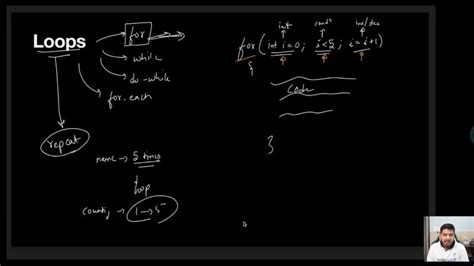 Loops
for
while
do-while
for-each
repeat
name → 5 times
loop
count → 1 → 5
init cond inc/dec
for (int i=0; i<5; i=i+1)
{
Code
}